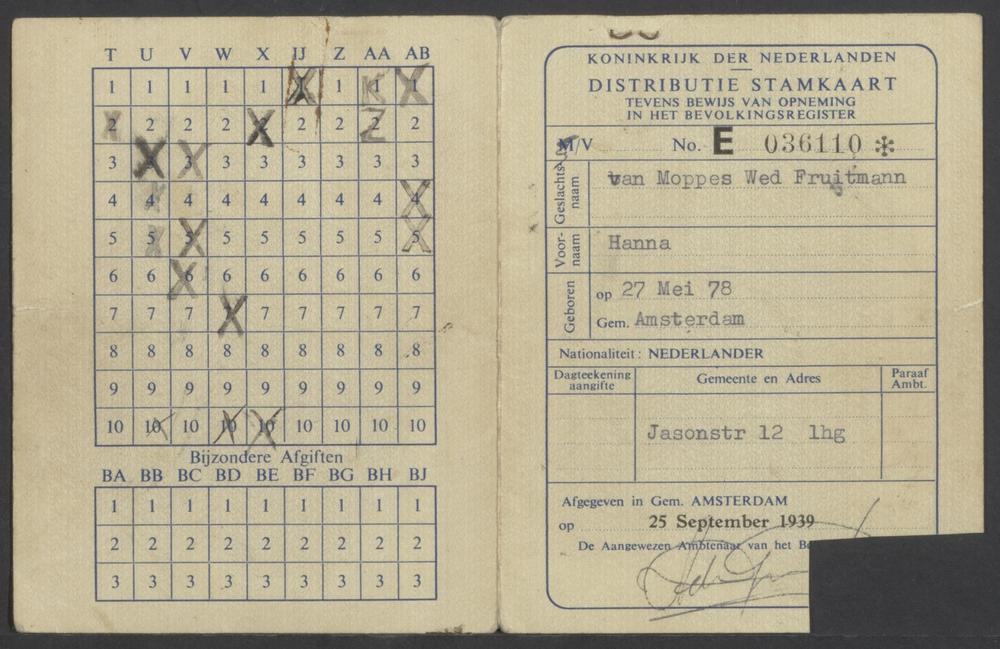 T U V W X IJ Z AA AB
1 1 1 1 1 1 1 1 1
2 2 2 2 2 2 2 2 2
3 3 3 3 3 3 3 3 3
4 4 4 4 4 4 4 4 4
5 5 5 5 5 5 5 5 5
6 6 6 6 6 6 6 6 6
7 7 7 7 7 7 7 7 7
8 8 8 8 8 8 8 8 8
9 9 9 9 9 9 9 9 9
10 10 10 10 10 10 10 10 10
Bijzondere Afgiften
BA BB BC BD BE BF BG BH BJ
1 1 1 1 1 1 1 1 1
2 2 2 2 2 2 2 2 2
3 3 3 3 3 3 3 3 3
KONINKRIJK DER NEDERLANDEN
DISTRIBUTIE STAMKAART
TEVENS BEWIJS VAN OPNEMING
IN HET BEVOLKINGSREGISTER
M/V No. E 036110 *
Geslachts-
naam
van Moppes Wed Fruitmann
Voor-
naam
Hanna
Geboren
op 27 Mei 78
Gem. Amsterdam
Nationaliteit: NEDERLANDER
Dagteekening
aangifte
Gemeente en Adres
Paraaf
Ambt.
Jasonstr 12 lhg
Afgegeven in Gem. AMSTERDAM
op 25 September 1939
De Aangewezen Ambtenaar van het